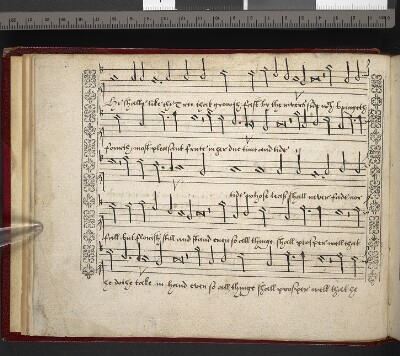 He shalbe like the Tree that growith fast by the rivers side wch bringeth
foorth most pleasant frute in her due time and tide
tide whose leaf shall never fade nor
fall but florish still and stand even so all things shall prosper well that
he dothe take in hand even so all things shall prosper well that he